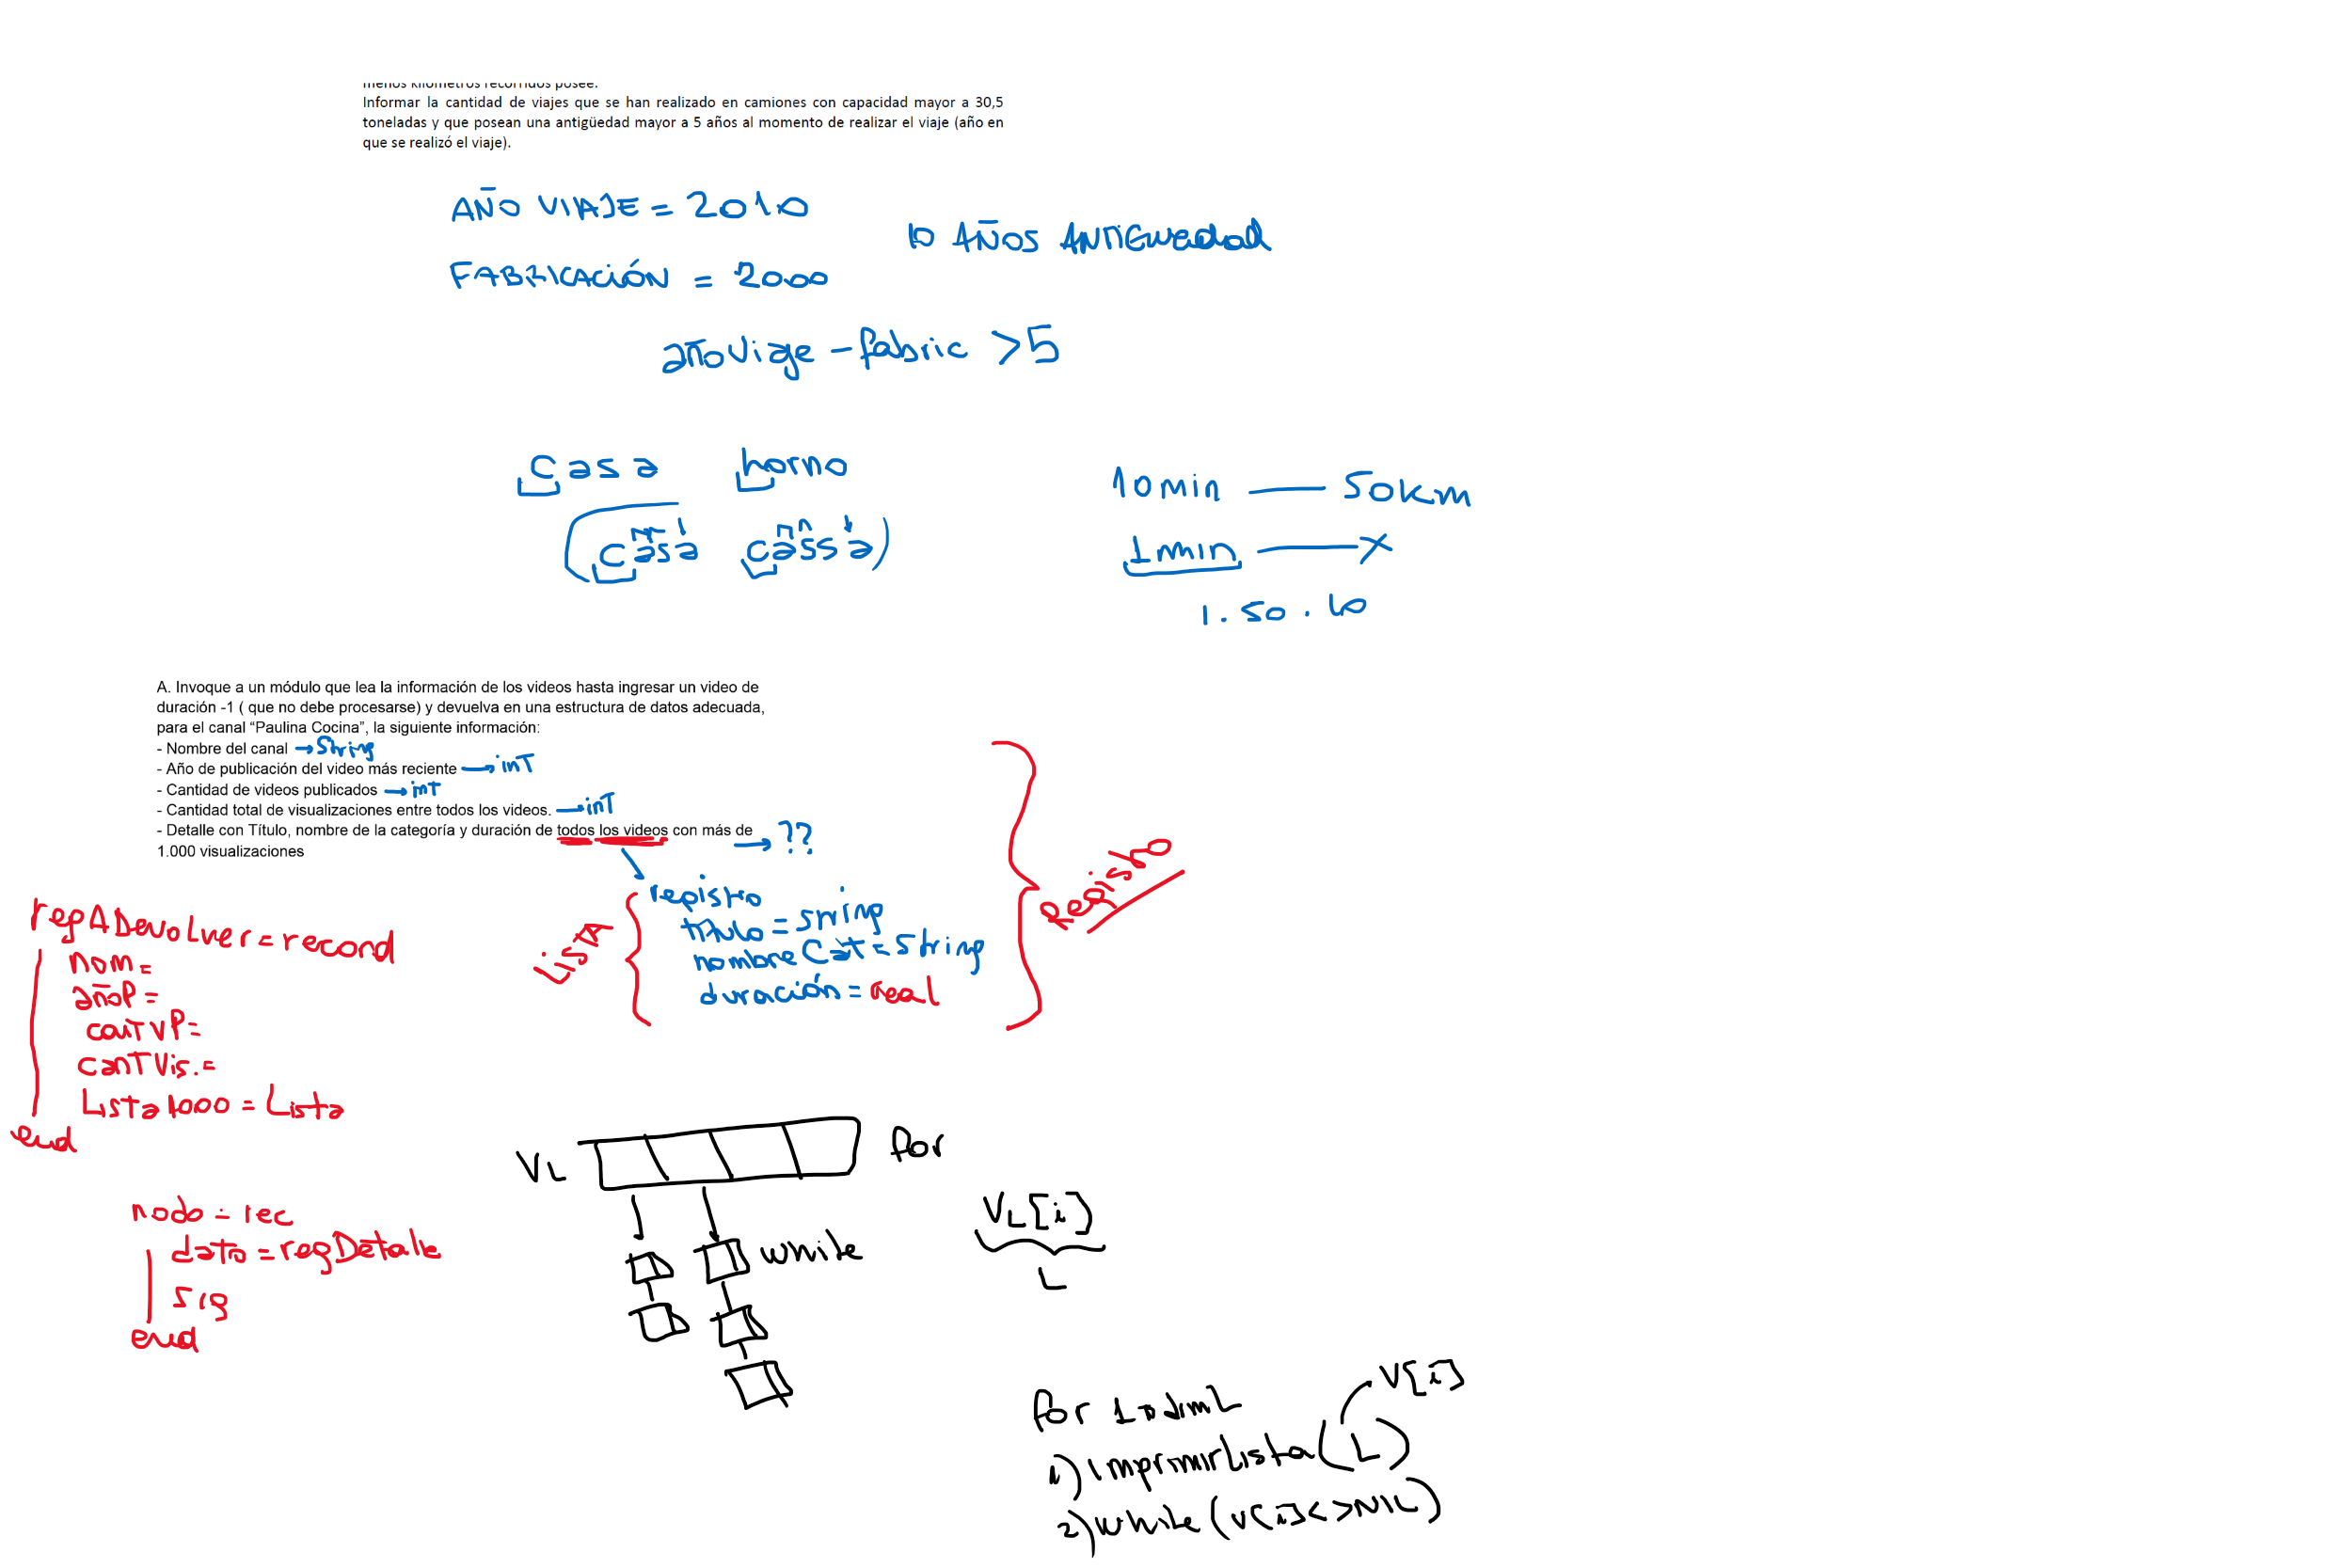 menos kilómetros recorridos posee.
Informar la cantidad de viajes que se han realizado en camiones con capacidad mayor a 30,5
toneladas y que posean una antigüedad mayor a 5 años al momento de realizar el viaje (año en
que se realizó el viaje).
AÑO VIAJE = 2010
10 AÑOS ANTIGuedad
FABRICACIÓN = 2000
añoviaje - fabric > 5
casa horno
(casa cassa)
10min — 50Km
1min — X
1 . 50 . 10
A. Invoque a un módulo que lea la información de los videos hasta ingresar un video de
duración -1 ( que no debe procesarse) y devuelva en una estructura de datos adecuada,
para el canal “Paulina Cocina”, la siguiente información:
- Nombre del canal → String
- Año de publicación del video más reciente → inT
- Cantidad de videos publicados → int
- Cantidad total de visualizaciones entre todos los videos. → inT
- Detalle con Título, nombre de la categoría y duración de todos los videos con más de → ??
1.000 visualizaciones
registro
titulo = string
nombre Cat = String
duración = real
LISTA
Registro
regADevolver = record
nom =
añoP =
canTVP =
canTVis. =
Lista1000 = Lista
end
nodo = rec
dato = regDetalle
sig
end
VL
for
while
VL[i]
L
for 1 to dimL
V[i]
1) imprimirLista (L)
2) while (v[i] <> NIL)